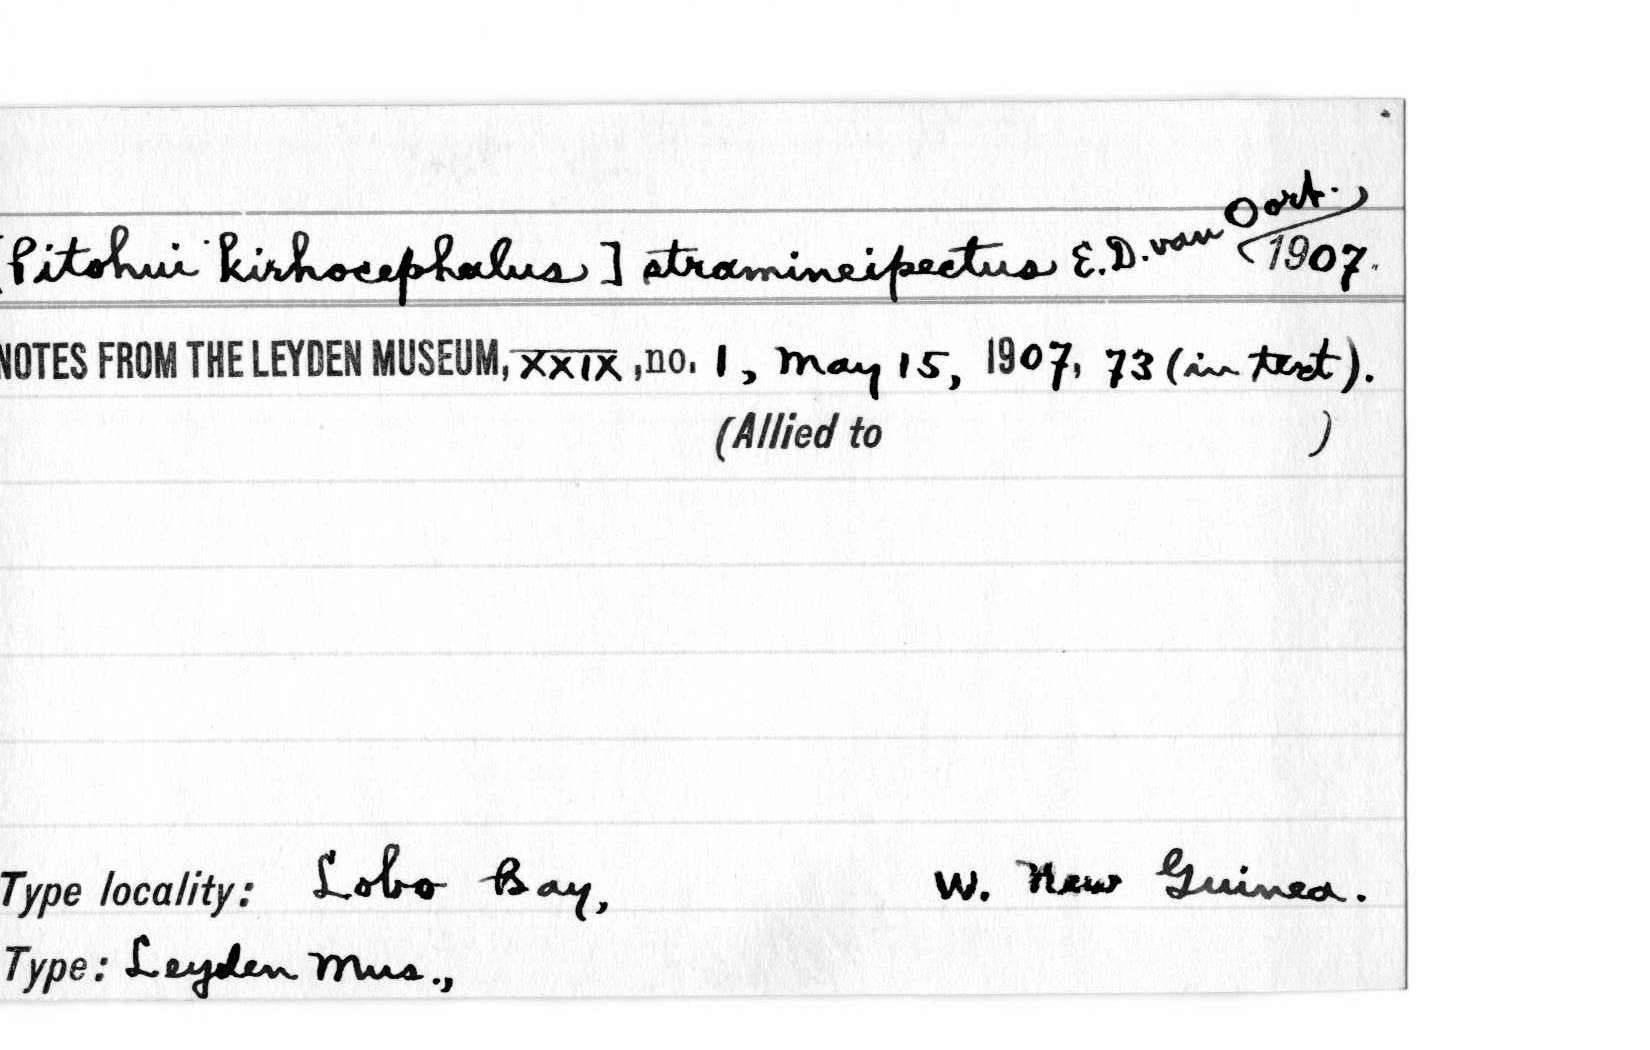 [Pitohui kirhocephalus] stramineipectus E.D. van Oort. 1907.
NOTES FROM THE LEYDEN MUSEUM, XXIX, no. 1, May 15, 1907, 73 (in text).
(Allied to )
Type locality: Lobo Bay, W. New Guinea.
Type: Leyden Mus.,